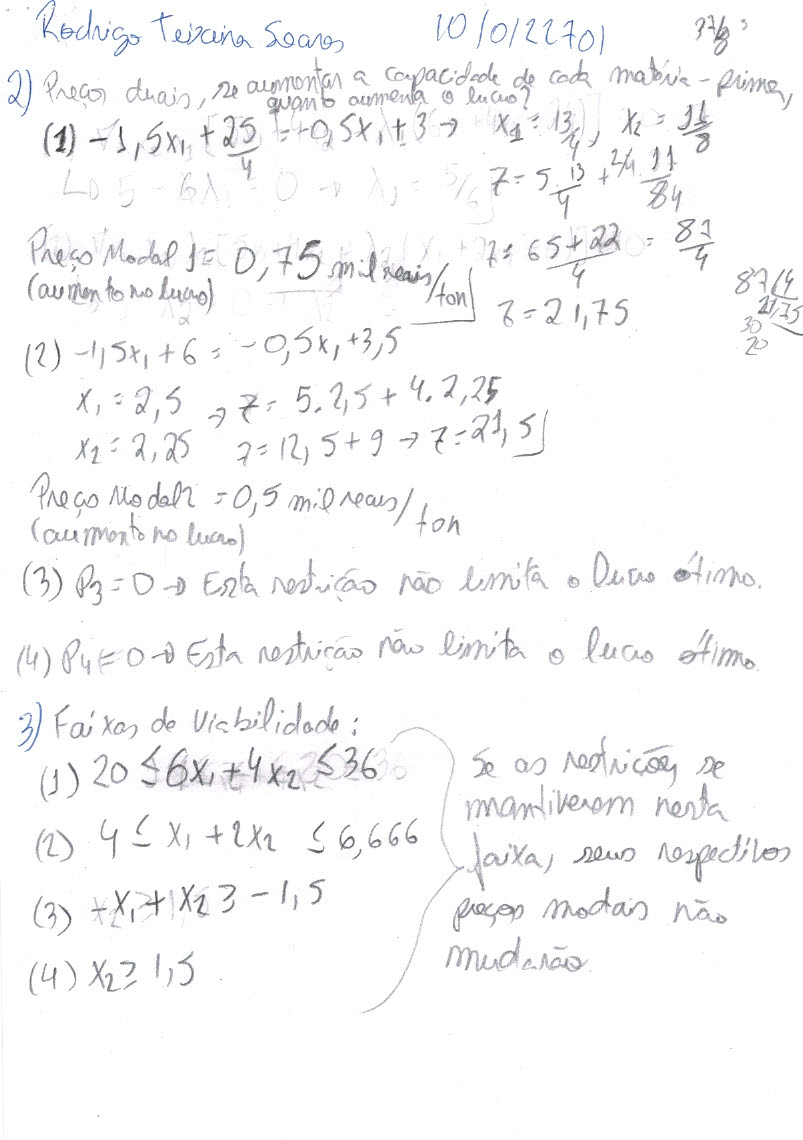 Rodrigo Teixeira Soares 10/0122701
2) Preços duais, se aumentar a capacidade de cada matéria-prima,
quanto aumenta o lucro?
(1) -1,5x₁ + 25/4 = -0,5x₁ + 3 → x₁ = 13/4, x₂ = 11/8
L→ 5 - 6λ₁ = 0 → λ₁ = 5/6
z = 5 13/4 + 4 11/8
Preço Modal 1 = 0,75 mil reais/ton
(aumento no lucro)
z = 65+22/4 = 87/4
z = 21,75
87 4
30 21,75
20
(2) -1,5x₁ + 6 = -0,5x₁ + 3,5
x₁ = 2,5 → z = 5.2,5 + 4.2,25
x₂ = 2,25 z = 12,5 + 9 → z = 21,5
Preço Modal 2 = 0,5 mil reais/ton
(aumento no lucro)
(3) P₃ = 0 → Esta restrição não limita o lucro ótimo.
(4) P₄ = 0 → Esta restrição não limita o lucro ótimo.
3) Faixas de Viabilidade:
(1) 20 ≤ 6x₁ + 4x₂ ≤ 36
(2) 4 ≤ x₁ + 2x₂ ≤ 6,666
(3) -x₁ + x₂ ≥ -1,5
(4) x₂ ≥ 1,5
Se as restrições se
mantiverem nesta
faixa, seus respectivos
preços modais não
mudarão.